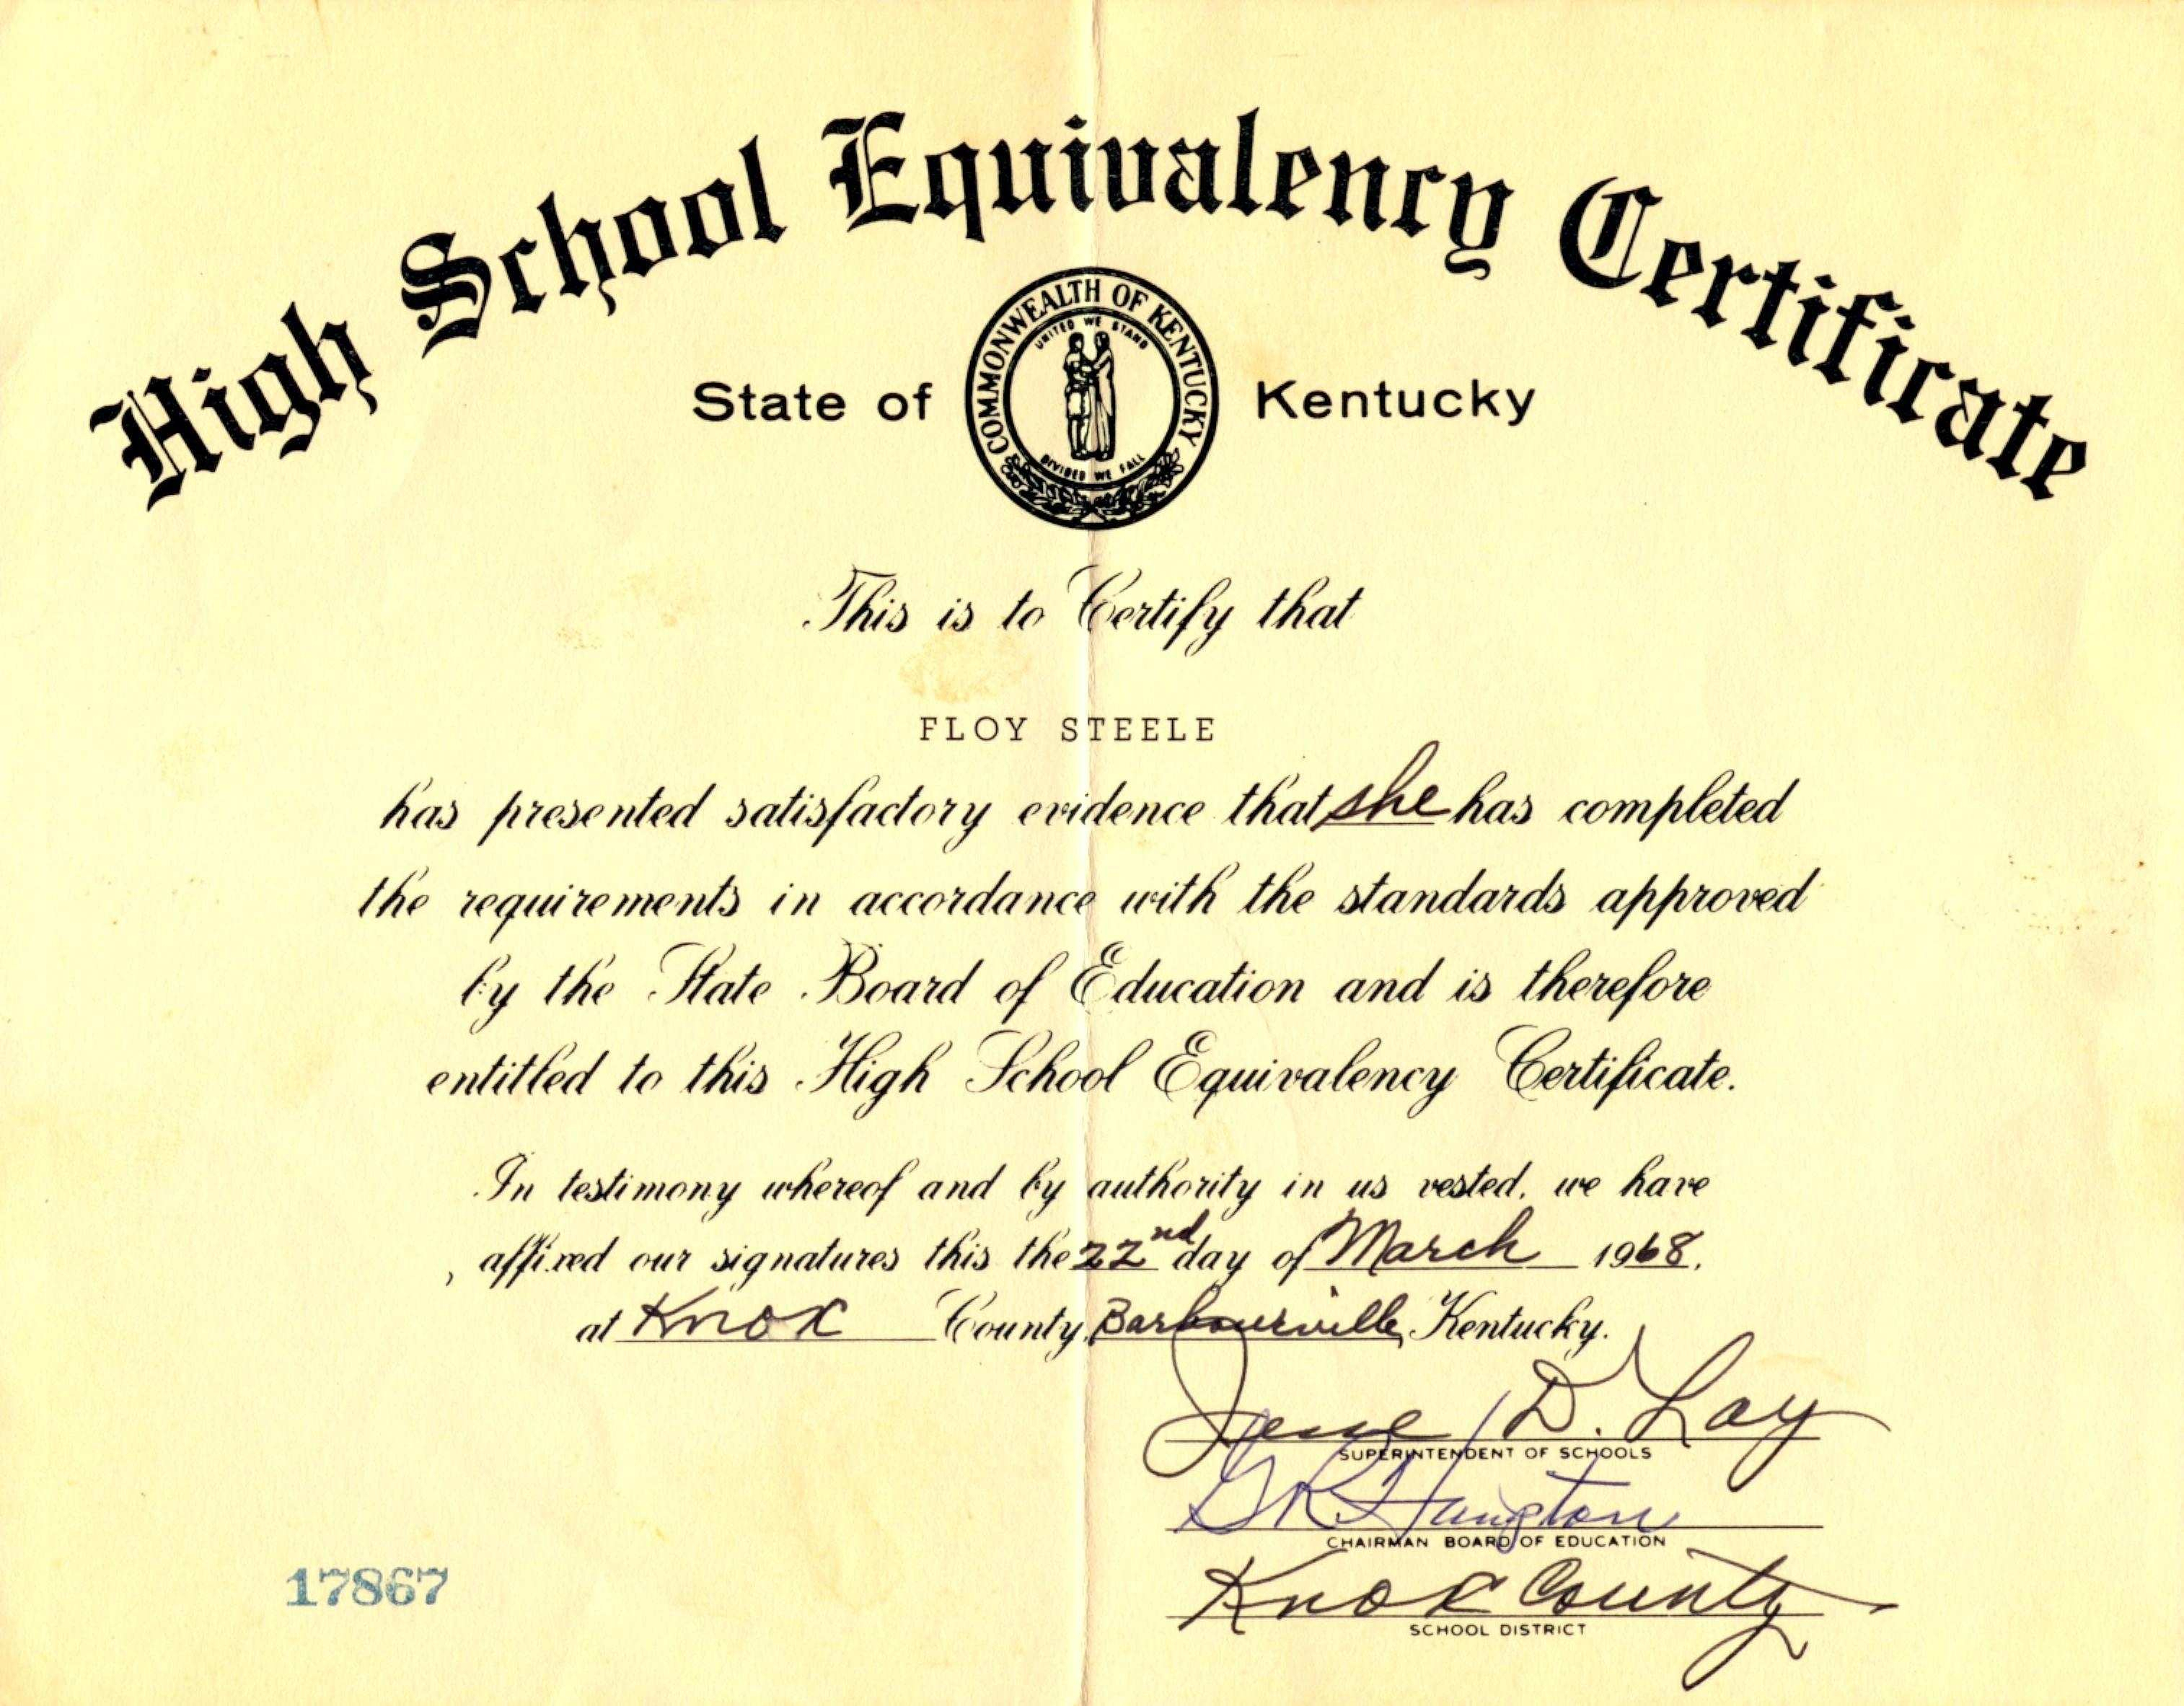 High School Equivalency Certificate
State of Kentucky
COMMONWEALTH OF KENTUCKY
UNITED WE STAND
DIVIDED WE FALL
This is to Certify that
FLOY STEELE
has presented satisfactory evidence that she has completed
the requirements in accordance with the standards approved
by the State Board of Education and is therefore
entitled to this High School Equivalency Certificate.
In testimony whereof and by authority in us vested, we have
affixed our signatures this the 22nd day of March 1968.
at Knox County, Barbourville, Kentucky.
Jesse D. Lay
SUPERINTENDENT OF SCHOOLS
CHAIRMAN BOARD OF EDUCATION
Knox County
SCHOOL DISTRICT
17867